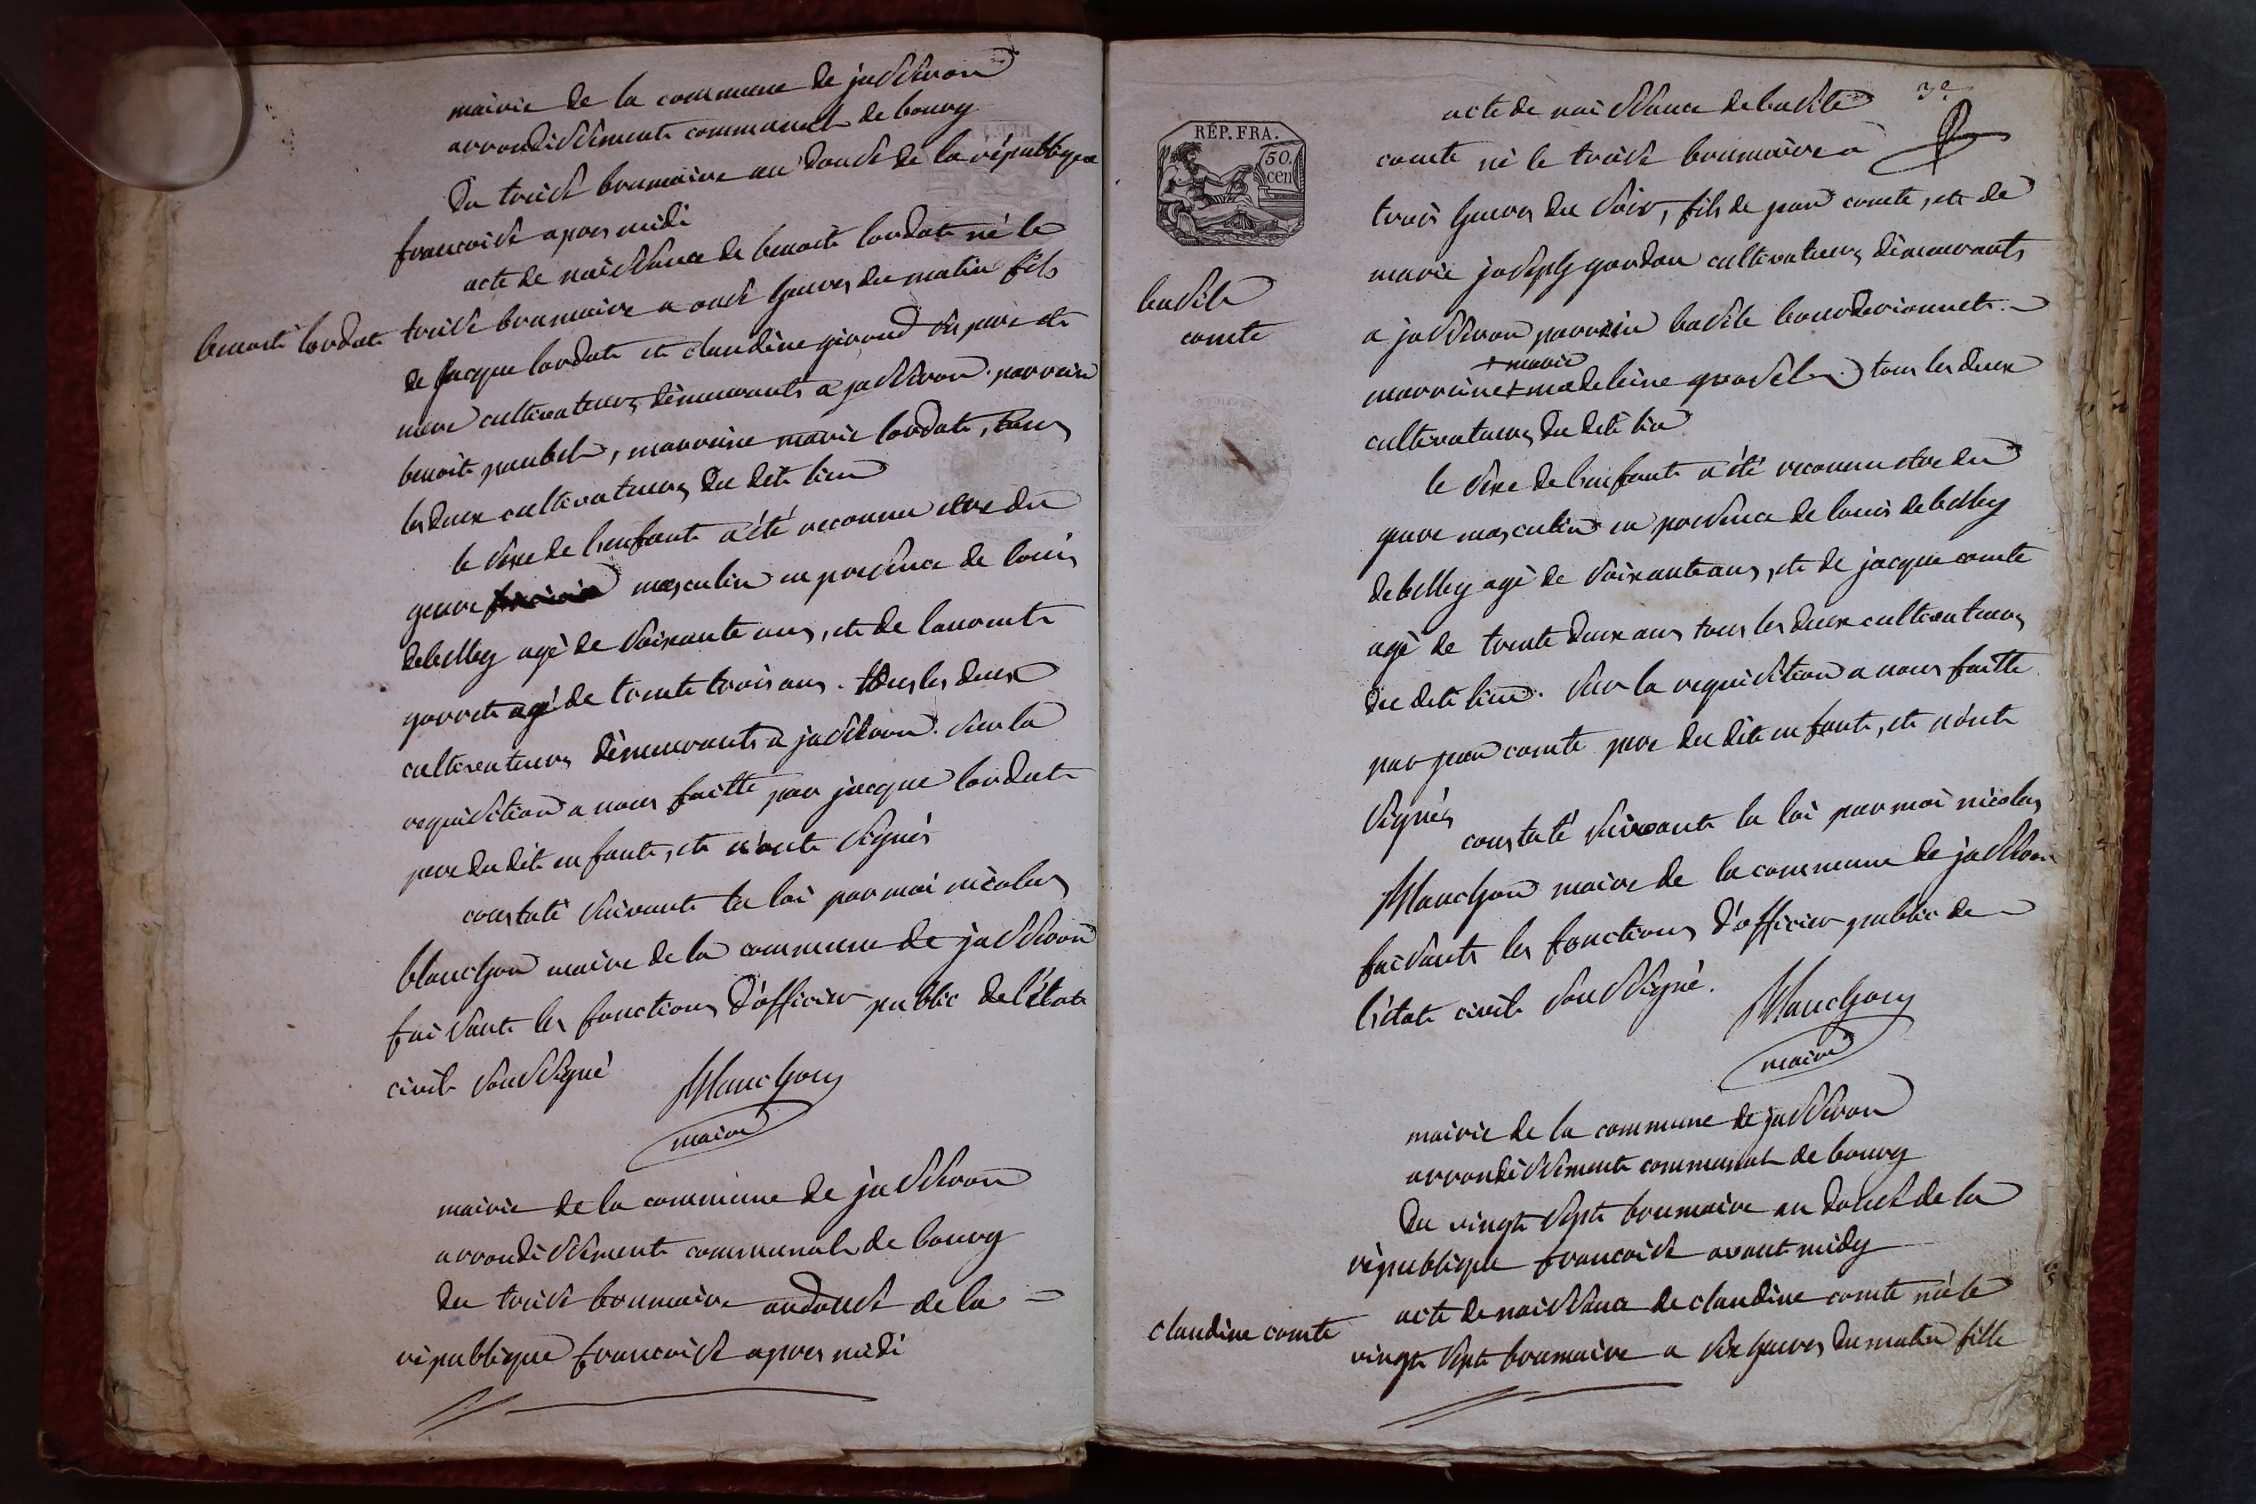 mairie de la commune de jasseron
arrondissement communal de bourg
Du treise brumaire an douse de la république
francoise apres midi
acte de naissance de benoit lordat né le
benoit lordat
treise brumaire a onse heures du matin fils
de jacque lordat et claudine giroud ses pere et
mere cultivateurs démeurants a jasseron. parrain
benoit paubel, marreine marie lordat, tous
les deux cultivateurs du dit lieu
le sexe de l'enfant a été reconnu etre du
genre masculin en presence de louis
debelley agé de soixante ans, et de laurent
parret agé de trente trois ans. tous les deux
cultivateurs démeurants a jasseron. sur la
requisition a nous faitte par jacque lordat
pere du dit enfant, et n'ont signés
constaté suivant la loi par moi nicolas
blanchon maire de la commune de jasseron
faisant les fonctions d'officier public de l'état
civil soussigné
Blanchon
maire
mairie de la commune de jasseron
arrondissement communal de bourg
du treise brumaire an douse de la =
république francoise apres midi
3e
RÉP. FRA.
50. cen
acte de naissance de basile
basile
comte
comte né le treise brumaire a
trois heures du soir, fils de jean comte, et de
marie joseph gordon cultivateurs démeurants
a jasseron parrein basile bourderionnet.
+ marie
marreine + madeleine gradel tous les deux
cultivateurs du dit lieu
le sexe de l'enfant a été reconnu etre du
genre masculin en presence de louis debelley
debelley agé de soixante ans, et de jacque comte
agé de trente deux ans tous les deux cultivateurs
du dit lieu. sur la requisition a nous faitte
par jean comte pere du dit enfant, et n'ont
signés
constaté suivant la loi par moi nicolas
Blanchon maire de la commune de jasseron
faisant les fonctions d'officier public de
l'état civil soussigné.
Blanchon
maire
mairie de la commune de jasseron
arrondissement communal de bourg
Du vingt sept brumaire an douse de la
république francoise avant midy
acte de naissance de claudine comte née le
claudine comte
vingt sept brumaire a six heures du matin fille